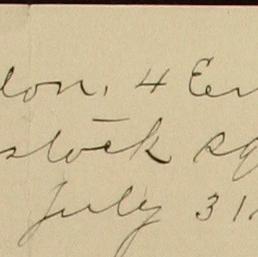 don, 4 En
stock sq
July 31